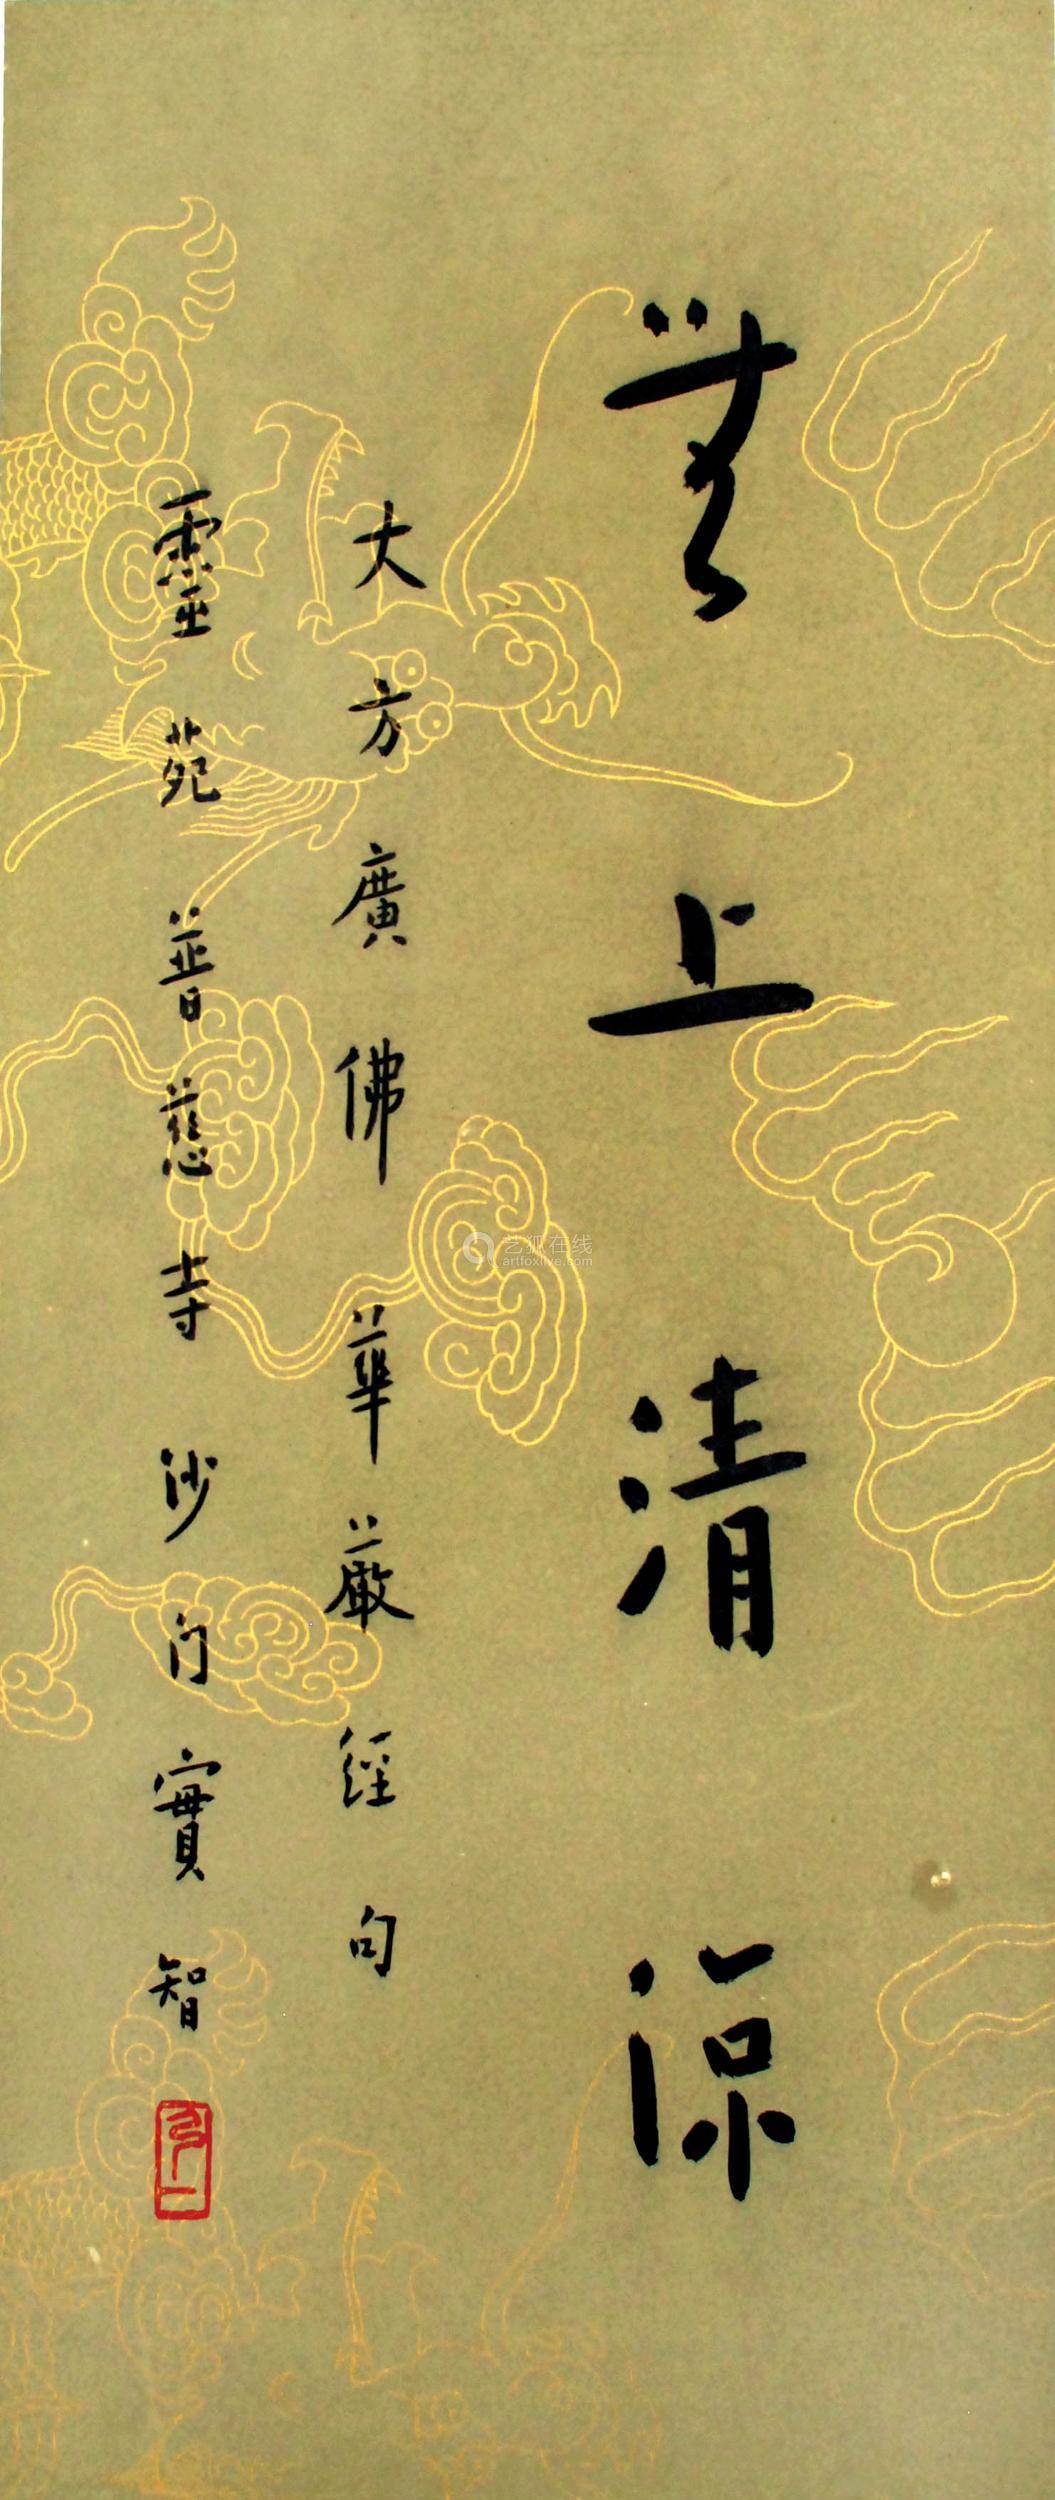 无上清涼
大方廣佛華嚴經句
靈苑普慈寺沙门實智
艺狐在线
artfoxlive.com